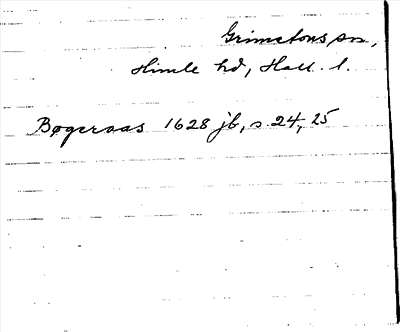 Grimetons sn,
Himle hd, Hall. l.
Bøgeraas 1628 jb, s 24, 25